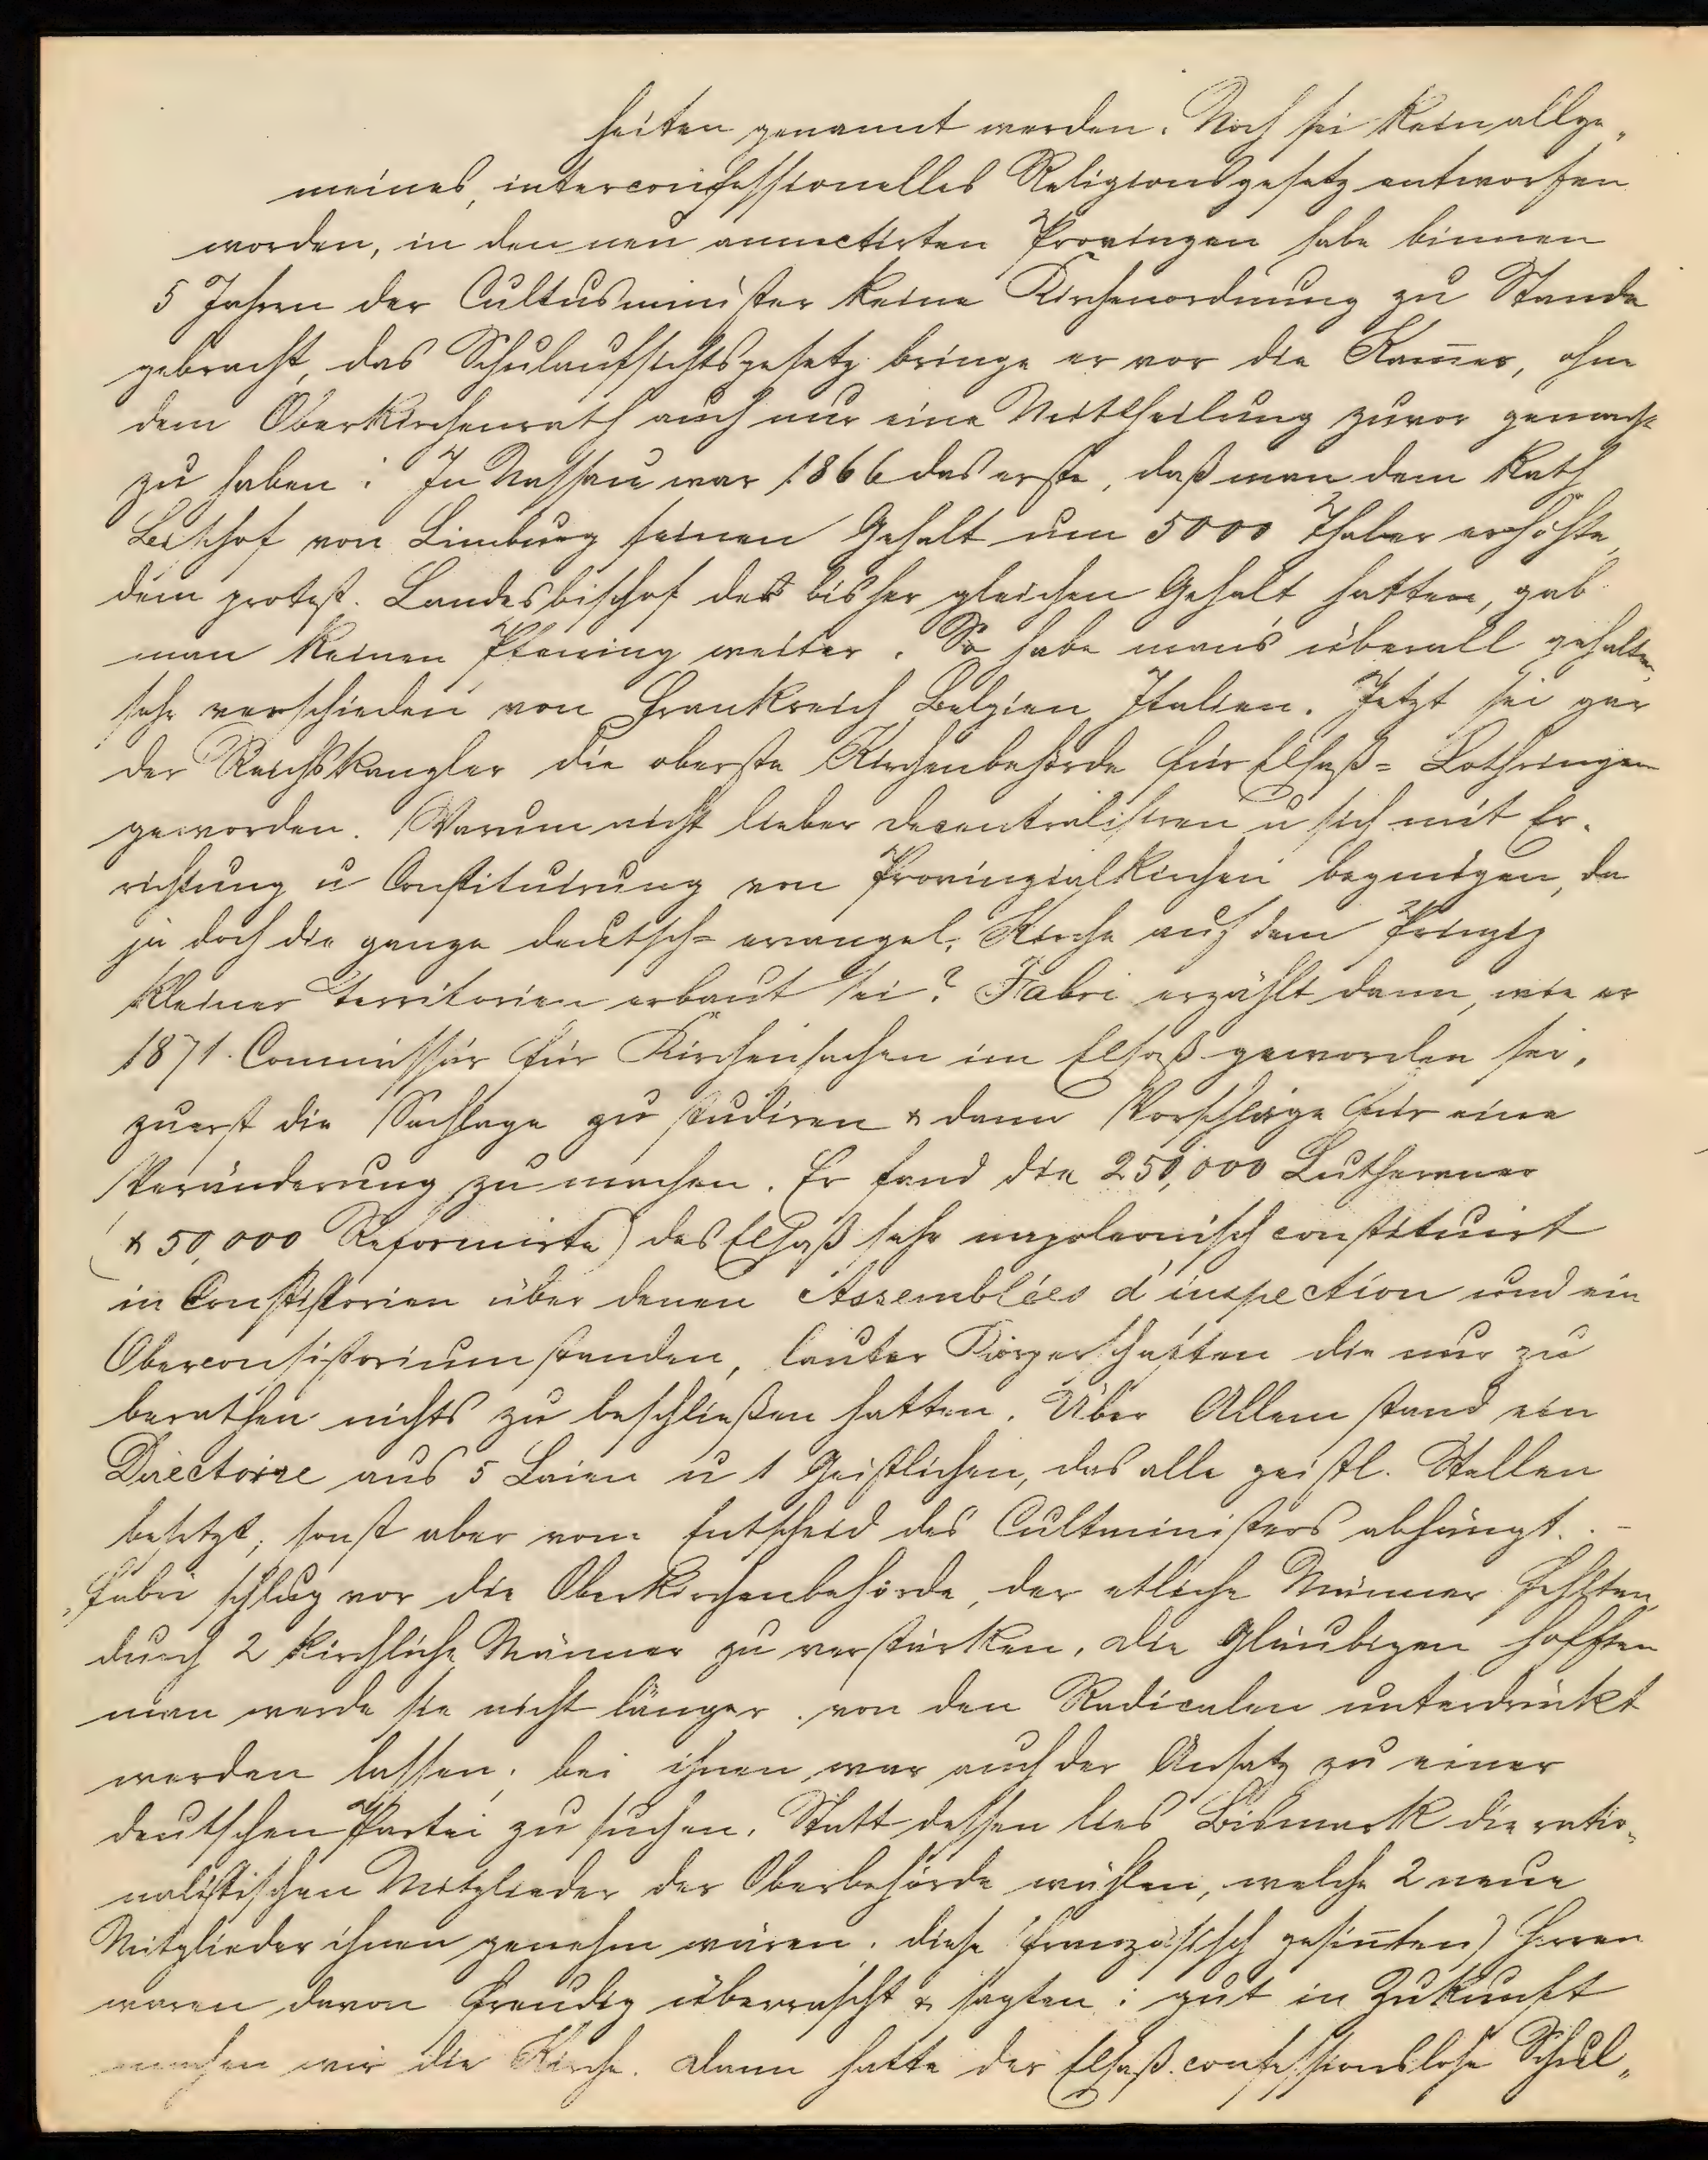 heiten genannt werden. Noch sei kein allge„
meines, interconfessionelles Religionsgesetz entworfen
worden, in den neu annectirten Provinzen habe binnen
5 Jahren der Cultusminister keine Kirchenordnung zu Stande
gebracht, das Schulaufsichtsgesetz bringe er vor die Kam̄er, ohne
dem Oberkirchenrath auch nur eine Mittheilung zuvor gemacht
zu haben: In Nassau war 1866 das erste, daß man dem Kath
Bischof von Limburg seinen Gehalt um 5000 Thaler erhöhte,
dem protest. Landesbischof der bisher gleichen Gehalt hatte, gab
man keinen Pfenning weiter. So habe man's überall gehalten,
sehr verschieden von Frankreich Belgien Italien. Jetzt sei gar
der Reichskanzler die oberste Kirchenbehörde für Elsaß= Lothringen
geworden. Warum nicht lieber decentralisiren u sich mit Er-
richtung u Constituirung von Provinzialkirchen begnügen, da
ja doch die ganze deutsch= evangel. Kirche auf dem Prinzip
kleiner Territorien erbaut sei? Fabri erzählt dann, wie er
1871. Commissär für Kirchensachen im Elsaß geworden sei,
zuerst die Sachlage zu studiren & dann Vorschläge für eine
Veränderung zu machen. Er fand die 250,000 Lutheraner
(& 50,000 Reformirte) des Elsaß sehr napoleonisch constituirt
in Consistorien über denen Assemblées d'inspection und ein
Oberconsistorium standen, lauter Körperschaften die nur zu
berathen nichts zu beschließen hatten. Über Allem stand ein
Directoire aus 5 Laien u 1 Geistlichen, das alle geistl. Stellen
besetzt, sonst aber vom Entscheid des Cultministers abhängt. -
Fabri schlug vor die Oberkirchenbehörde, der etliche Männer fehlten,
durch 2 kirchliche Männer zu verstärken, die Gläubigen hofften
man werde sie nicht länger von den Radicalen unterdrückt
werden lassen; bei ihnen war auch der Ansatz zu einer
deutschen Partei zu suchen. Statt dessen lies Bismark die ratio„
nalistischen Mitglieder der Oberbehörde wählen, welche 2 neue
Mitglieder ihnen genehm wären. diese (französisch gesin̄ten) Herren
waren davon freudig überrascht & sagten: gut in Zukunft
machen wir die Kirche. Dann hatte der Elsaß confessionslose Schul„